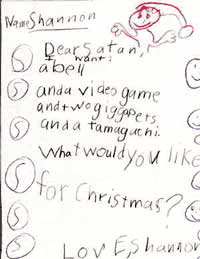 Name Shannon
Dear Satan,
I want:
a bell
and a video game
and two gigapets
and a tamaguchi.
What would you like
for Christmas?
Love, Shannon